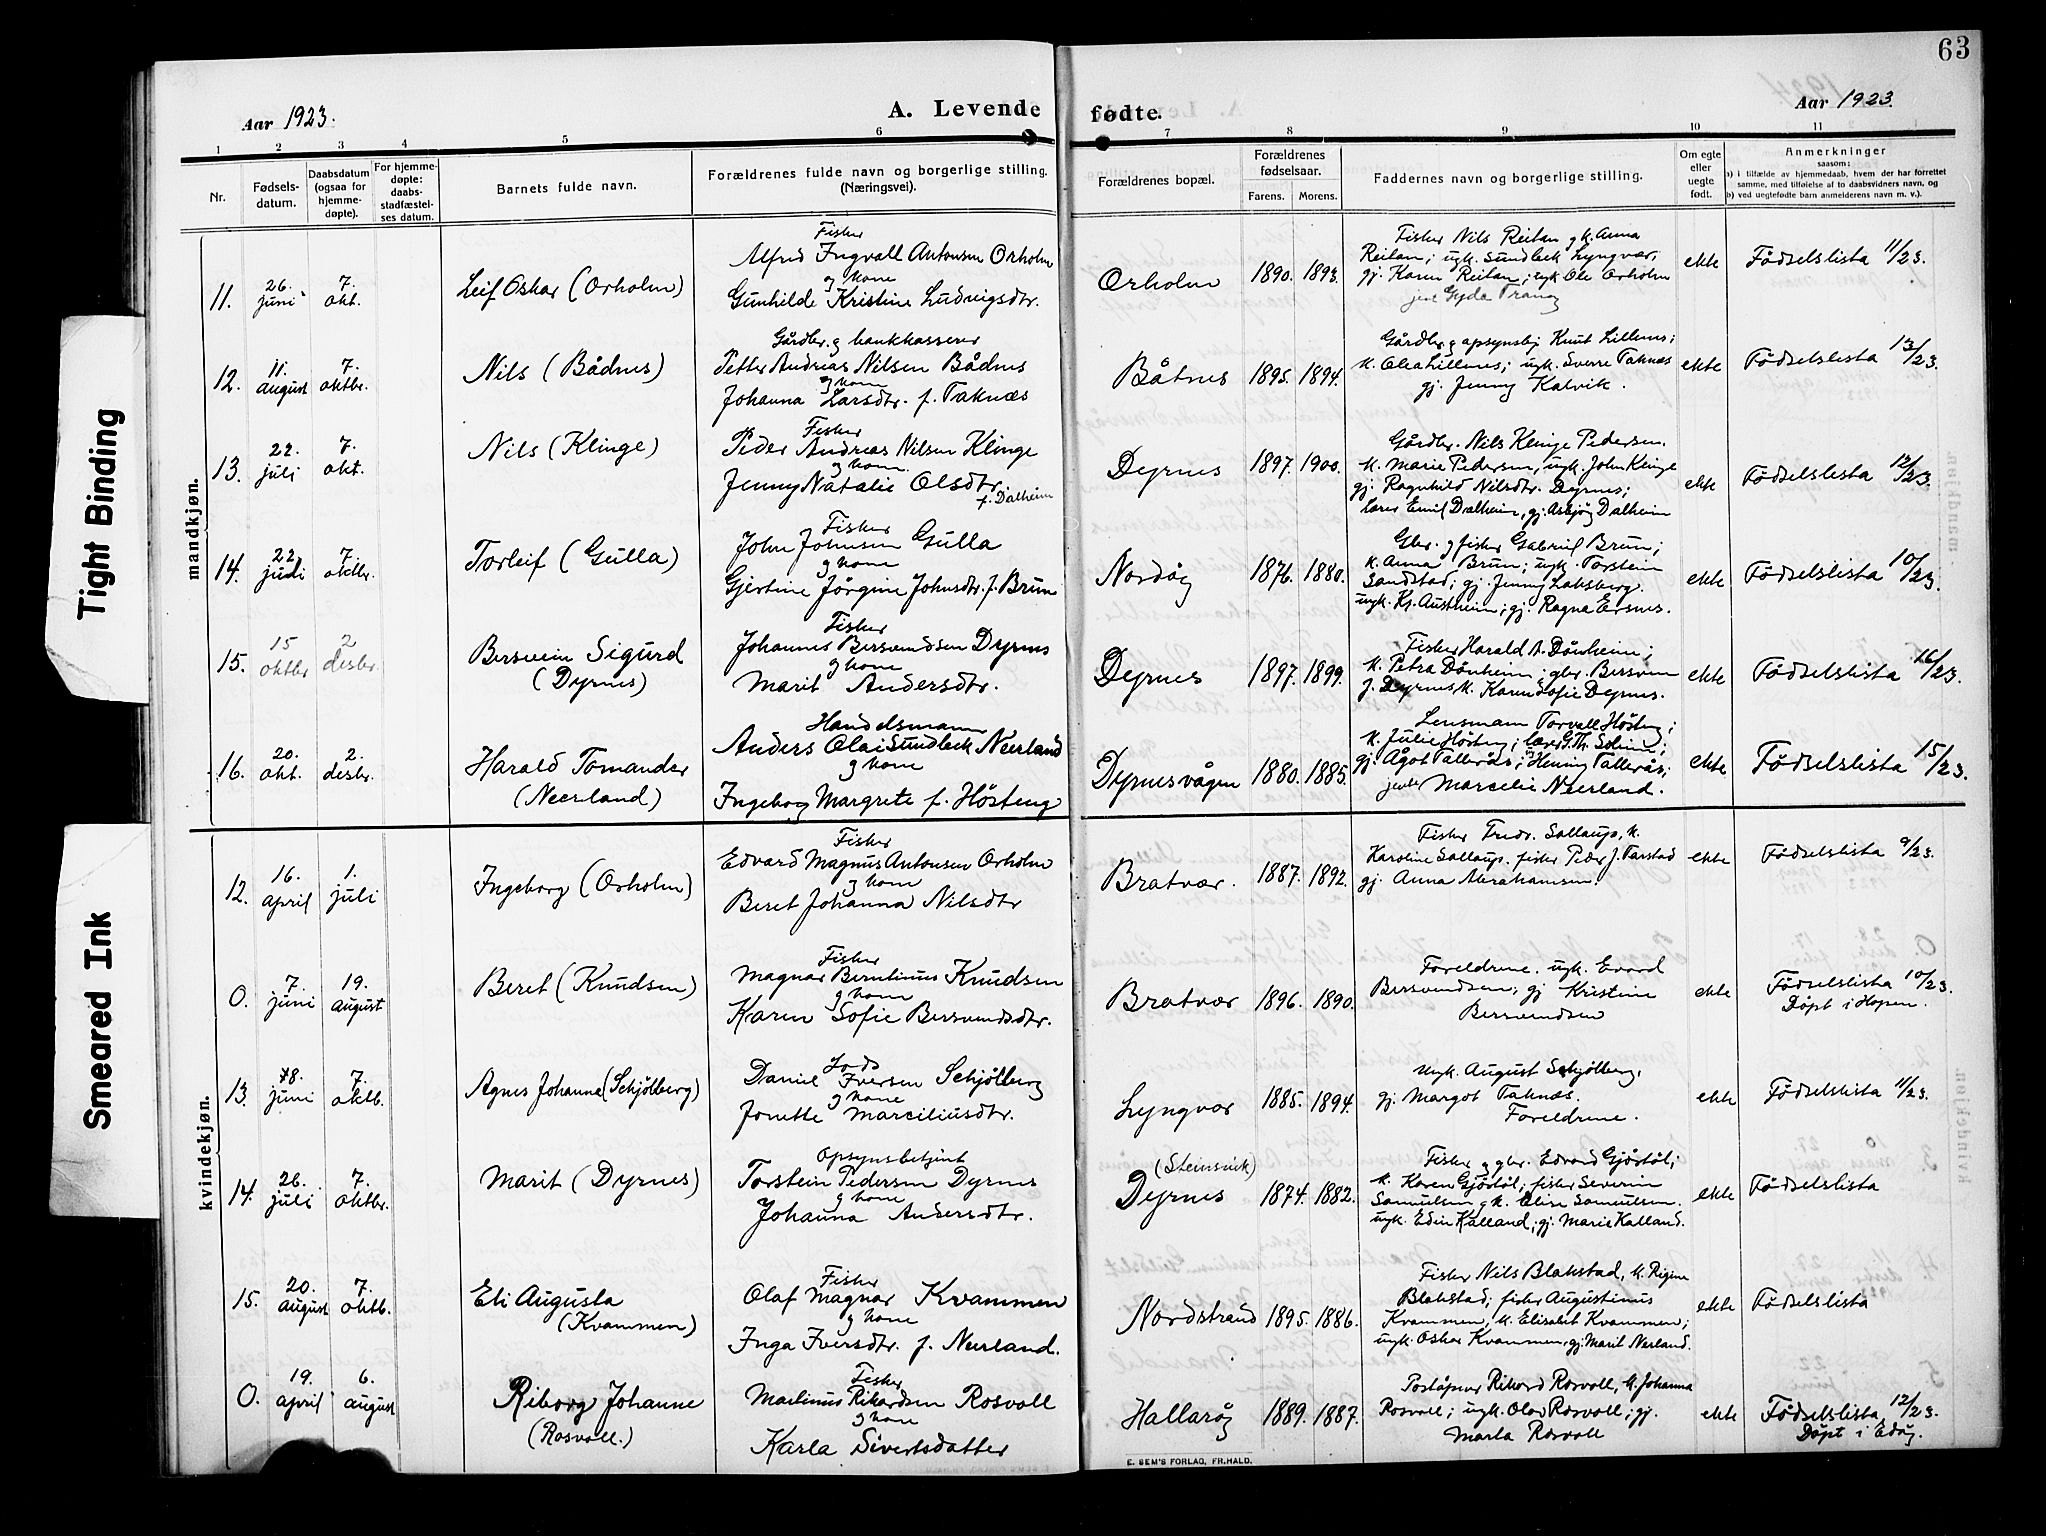 63
Aar 1923.
A. Levende fødte.
Aar 1923.
1 2 3 4 5 6 7 8 9 10 11
Nr.
Fødsels-
datum.
Daabsdatum
(ogsaa for
hjemme-
døpte).
For hjemme-
døpte:
daabs-
stadfæstel-
ses datum.
Barnets fulde navn.
Forældrenes fulde navn og borgerlige stilling.
(Næringsvei).
Forældrenes bopæl.
Forældrenes
fødselsaar.
Farens. Morens.
Faddernes navn og borgerlige stilling.
Om egte
eller
uegte
født.
Anmerkninger
saasom:
a) i tilfælde av hjemmedaab, hvem der har forrettet
samme, med tilføielse af to daabsvidners navn, og
b) ved uegtefødte barn anmelderens navn m. v.).
mandkjøn.
11.
26.
juni
7.
okt.
Leif Oskar (Orholm)
Fisker
Alfred Ingvall Antonsen Orholm
og kone
Gunhilde Kristine Ludvigsdtr.
Orholm
1890. 1893.
Fisker Nils Reitan og k. Anna
Reitan; ugk. Sundbeck Lyngvær,
gj. Karen Reitan; ugk Ole Orholm
jente Gyda Tranøy
ekte
Fødselslista 11/23.
12.
11.
august
7.
oktbr.
Nils (Bådnes)
Gårdbr. og bankkasserer
Petter Andreas Nilsen Bådnes
og kone
Johanna Larsdtr. f. Taknæs
Båtnes
1895. 1894.
Gårdbr. og opsynsbtj Knut Lillenes;
k. Olea Lillenes; ugk. Sverre Taknæs
gj. Jenny Kalvik.
ekte
Fødselslista 13/23.
13.
22.
juli
7.
okt.
Nils (Klinge)
Fisker
Peder Andreas Nilsen Klinge
og kone
Jenny Natalie Olsdtr.
f. Dalheim
Dyrnes
1897. 1900.
Gårdbr. Nils Klinge Pedersen.
k. Marie Pedersen; ugk. John Klinge
gj. Ragnhild Nilsdtr. Dyrnes;
Lærer Emil Dalheim, gj. Asbjørg Dalheim
ekte
Fødselslista 12/23.
14.
22.
juli
7.
oktbr.
Torleif (Gulla)
Fisker
John Johnsen Gulla
og kone
Gjertine Jørgine Johnsdtr. f. Brun
Nordøy
1876. 1880.
Gbr. og fisker Gabriel Brun;
k. Anna Brun; ugk. Torstein
Sandstad; gj. Jenny Laksberg.
ugk. Kr. Austheim; gj. Ragna Ersnes.
ekte
Fødselslista 10/23.
15.
15
oktbr
2
desbr.
Bersvein Sigurd
(Dyrnes)
Fisker
Johannes Bersvendsen Dyrnes
og kone
Marit Andersdtr.
Dyrnes
1897. 1899.
Fisker Harald A. Dønheim;
k. Petra Dønheim; gbr. Bersven
J. Dyrnes k. Karen Sofie Dyrnes.
ekte
Fødselslista 16/23.
16.
20.
okt.
2.
desbr.
Harald Tomander
(Neerland)
Handelsmann
Anders Olai Sundbeck Neerland
og kone
Ingeborg Margrete f. Høsteng
Dyrnesvågen
1880. 1885.
Lensmann Torvall Høsteng;
k. Julie Høsteng; lærer G. Th. Solem;
gj. Ågot Tallerås; Hening Tallerås;
jente Marcelie Neerland.
ekte
Fødselslista 15/23.
kvindekjøn.
12.
16.
april
1.
juli
Ingeborg (Orholm)
Fisker
Edvard Magnus Antonsen Orholm
og kone
Beret Johanna Nilsdtr
Bratvær.
1887. 1892.
Fisker Fredr. Sollaup, k.
Karoline Sollaup. fisker Peder J. Tarstad
gj. Anna Abrahamsen.
ekte
Fødselslista 9/23.
0.
7.
juni
19.
august
Beret (Knudsen)
Fisker
Magnar Berntinus Knudsen
og kone
Karen Sofie Bersvendsdtr.
Bratvær
1896. 1890.
Foreldrene. ugk. Evard
Bersvendsen; gj Kristine
Bersvendsen
ekte
Fødselslista 10/23.
Døpt i Hopen.
13.
18.
juni
7.
oktb.
Agnes Johanna (Schjølberg)
Daniel Iversen Schjølberg
og kone
Jonette Marciliusdtr.
Lyngvær
1885. 1894.
Ungk. August Schjølberg,
gj. Margot Taknæs.
Foreldrene.
ekte
Fødselslista 11/23.
14.
26.
juli
7.
oktbr.
Marit (Dyrnes)
Opsynsbetjent
Torstein Pedersen Dyrnes
og kone
Johanna Andersdtr.
(Steinsvik)
Dyrnes
1874. 1882.
Fisker og gbr. Edvard Gjøstøl;
k. Karen Gjøstøl; fisker Severin
Samuelsen og k. Elise Samuelsen.
ugk. Edin Kalland; gj. Marie Kalland.
ekte
Fødselslista
15.
20.
august
7.
oktb.
Eli Augusta
(Kvammen)
Fisker
Olaf Magnar Kvammen
og kone
Inga Iversdtr. f. Neerland.
Nordstrand
1895. 1886.
Fisker Nils Blakstad, k. Regine
Blakstad; fisker Augustinus
Kvammen, k. Elisabet Kvammen;
ugk. Oskar Kvammen, gj. Marit Nerland.
ekte
Fødselslista
0.
19.
april
6.
august
Riborg Johanne
(Rosvoll.)
Fisker
Martinus Rikardsen Rosvoll
og kone
Karla Sivertsdatter
Hallarøy
1889. 1887.
Poståpner Rikard Rosvoll, k. Johanna
Rosvoll; ugk. Olav Rosvoll; gj.
Marta Rosvoll
ekte
Fødselslista 12/23.
Døpt i Edøy.
E. SEM'S FORLAG, FR.HALD.
Tight Binding
Smeared Ink